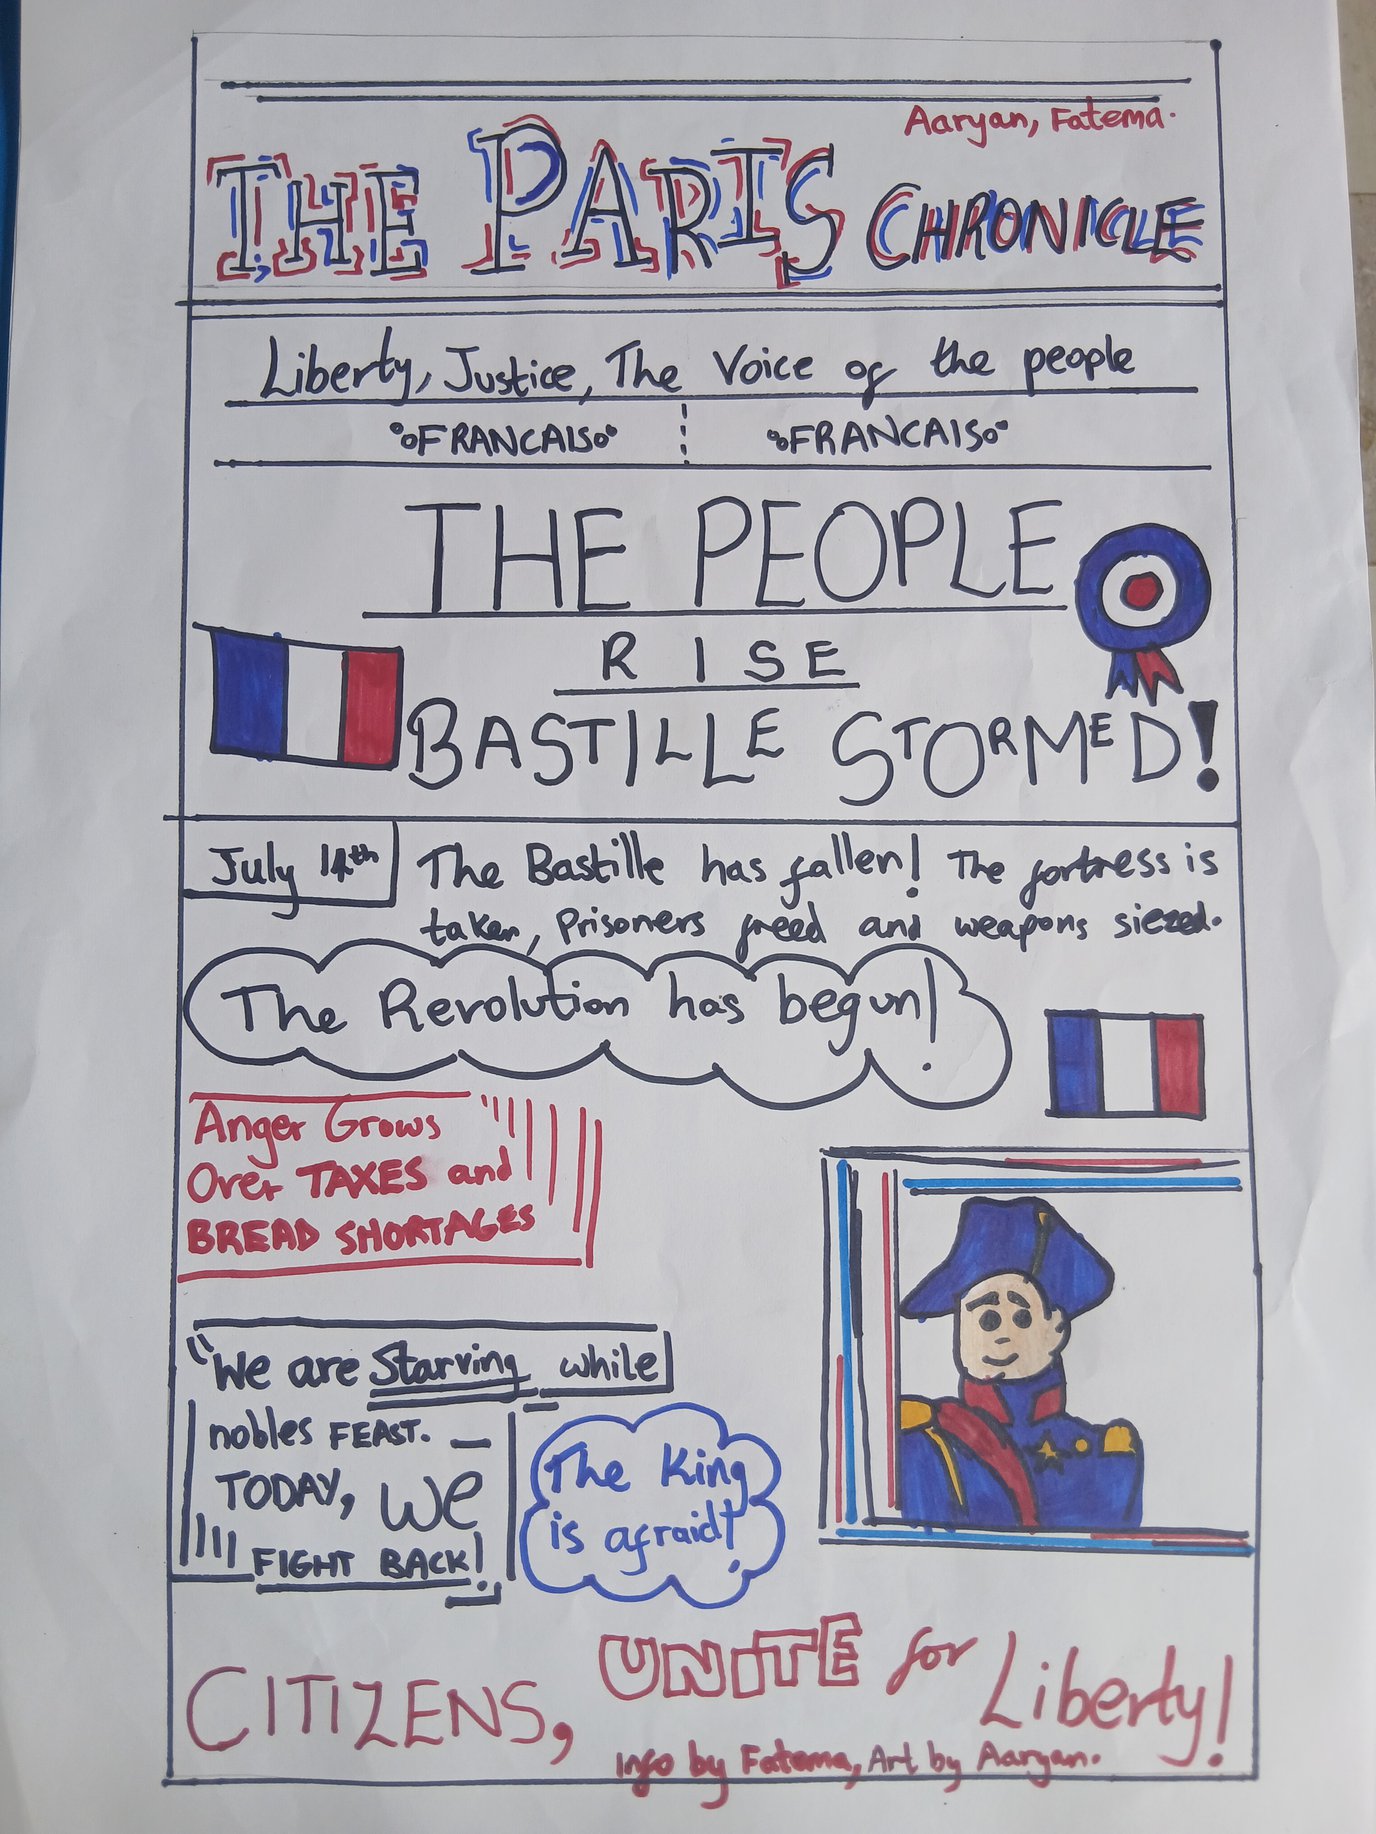 Aaryan, Fatema.
THE PARIS CHRONICLE
Liberty, Justice, The Voice of the people
FRANCAIS FRANCAIS
THE PEOPLE
RISE
BASTILLE STORMED!
July 14th
The Bastille has fallen! The fortress is
taken, Prisoners freed and weapons siezed.
The Revolution has begun!
Anger Grows
Over TAXES and
BREAD SHORTAGES
"We are Starving while
nobles FEAST.
TODAY, We
FIGHT BACK!
The King
is afraid!
CITIZENS, UNITE for Liberty!
Info by Fatema, Art by Aaryan.